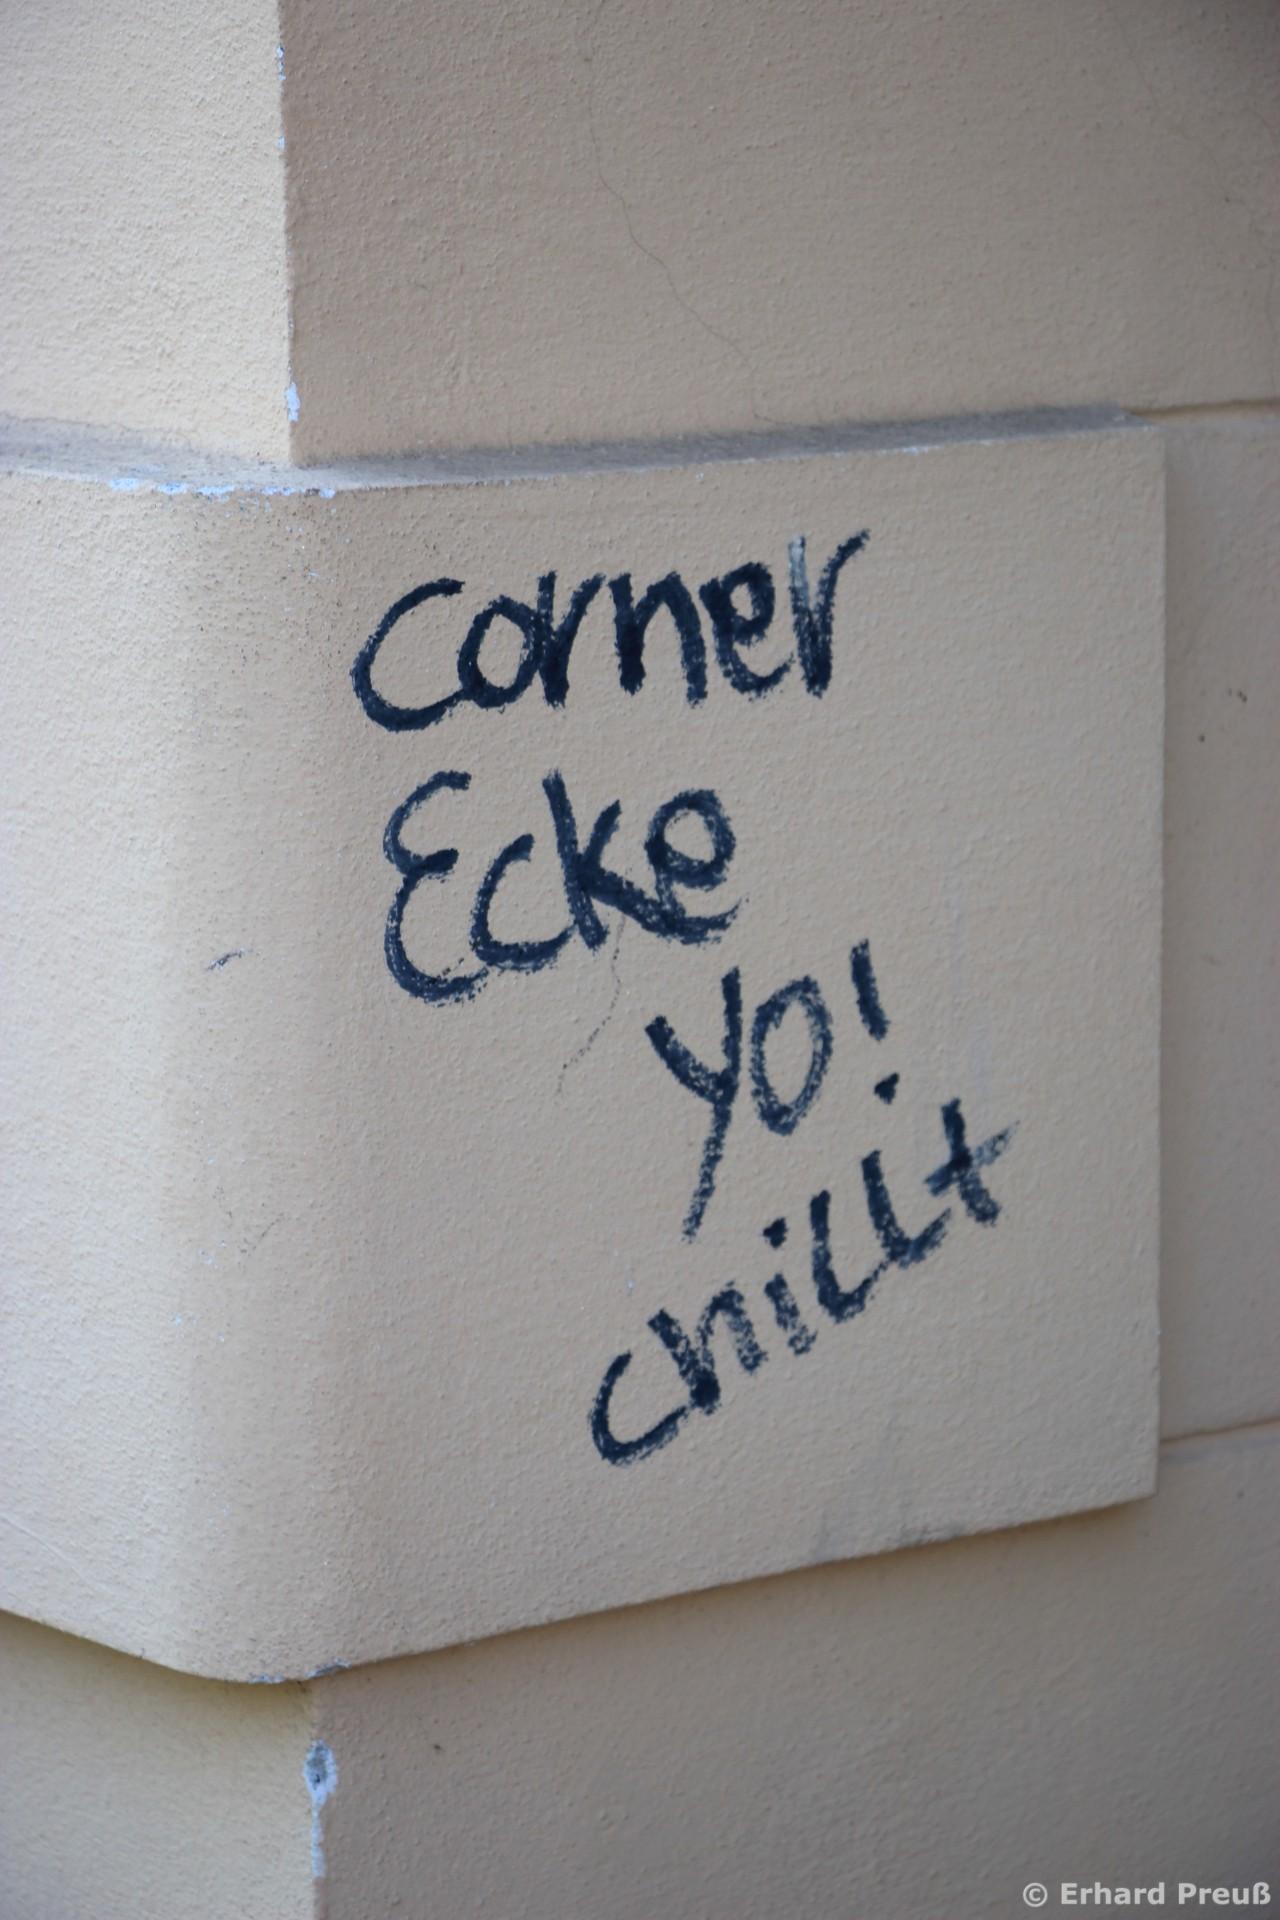 corner
Ecke
yo!
chillt
© Erhard Preuß